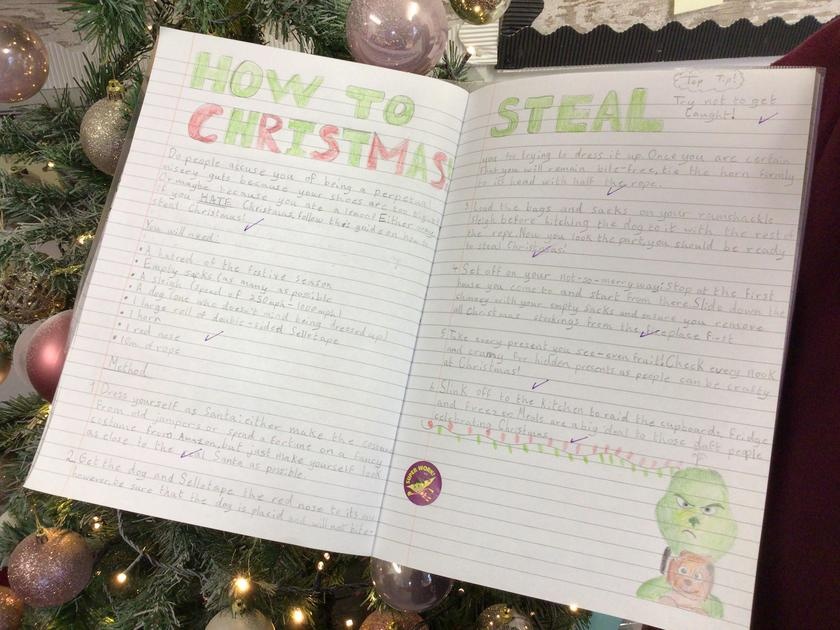 HOW TO STEAL
CHRISTMAS!
Top Tip!
Try not to get
Caught!
Do people accuse you of being a perpetual
misery guts because your shoes are too tight?
Or maybe because you ate a lemon? Either way,
if you HATE Christmas, follow this guide on how to
steal Christmas!
You will need:
• A hatred of the festive season
• Empty sacks (as many as possible
• A sleigh (speed of 250mph-1000mph)
• A dog (one who doesn't mind being dressed up)
• 1 large roll of double-sided Sellotape
• 1 horn
• 1 red nose
• 10m of rope
Method
1. Dress yourself as Santa: either make the
from old jumpers or spend a fortune on a fancy
costume from Amazon, but just make yourself look
as close to the real Santa as possible.
2. Get the dog and Sellotape the red nose to its
however, be sure that the dog is placid and will not bite
you to trying to dress it up. Once you are certain
that you will remain bite-free, tie the horn firmly
to its head with half the rope.
3. Load the bags and sacks on your ramshackle
sleigh before hitching the dog to it with the rest of
the rope. Now you look the part, you should be ready
to steal Christmas!
4. Set off on your not-so-merry way! Stop at the first
house you come to and start from there. Slide down the
chimney with your empty sacks and ensure you remove
all Christmas stockings from the fireplace first
5. Take every present you see-even fruit! Check every nook
and cranny for hidden presents as people can be crafty
at Christmas!
6. Slink off to the kitchen to raid the cupboards, fridge
and freezer. Meals are a big deal to those daft people
celebrating Christmas
SUPER WORK!